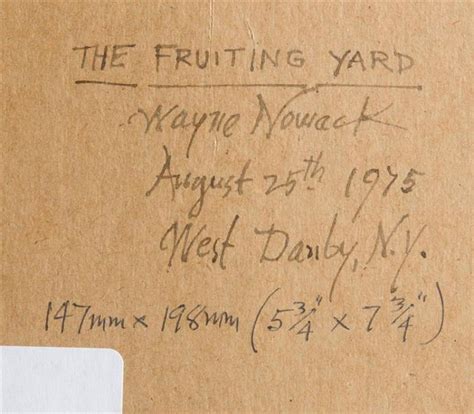 THE FRUITING YARD
Wayne Nowack
August 25th 1975
West Danby, N.Y.
147mm x 198mm (5 3/4" x 7 3/4")